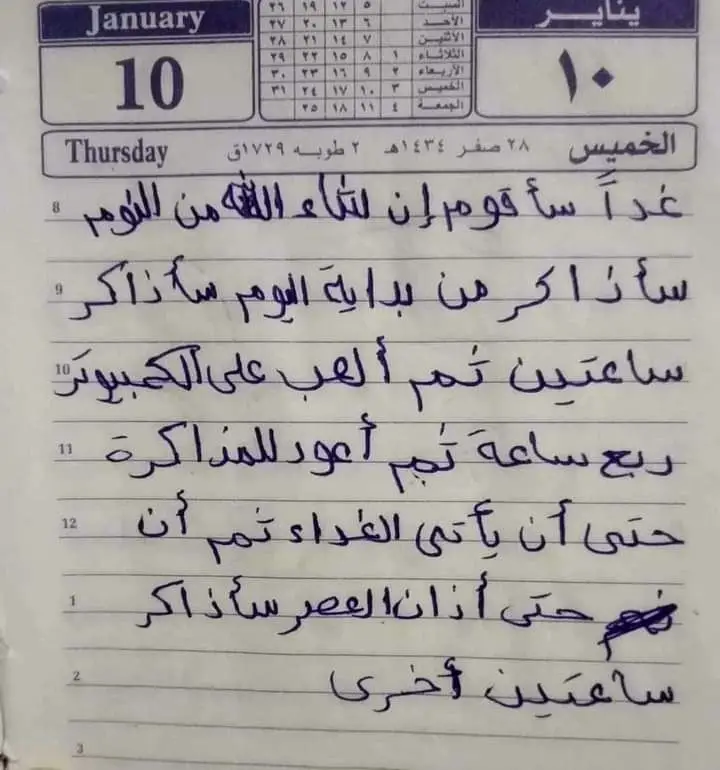 January
10
السبت ٥ ١٢ ١٩ ٢٦
الأحد ٦ ١٣ ٢٠ ٢٧
الأثنين ٧ ١٤ ٢١ ٢٨
الثلاثاء ١ ٨ ١٥ ٢٢ ٢٩
الأربعاء ٢ ٩ ١٦ ٢٣ ٣٠
الخميس ٣ ١٠ ١٧ ٢٤ ٣١
الجمعة ٤ ١١ ١٨ ٢٥
يناير
١٠
الخميس ٢٨ صفر ١٤٣٤هـ ٢ طوبه ١٧٢٩ق Thursday
8 غداً سأقوم إن شاء الله من النوم
9 سأذاكر من بداية اليوم سأذاكر
10 ساعتين ثم ألعب على الكمبيوتر
11 ربع ساعة ثم أعود للمذاكرة
12 حتى أن يأتى الغداء ثم أن
1 حتى أذان العصر سأذاكر
2 ساعتين أخرى
3